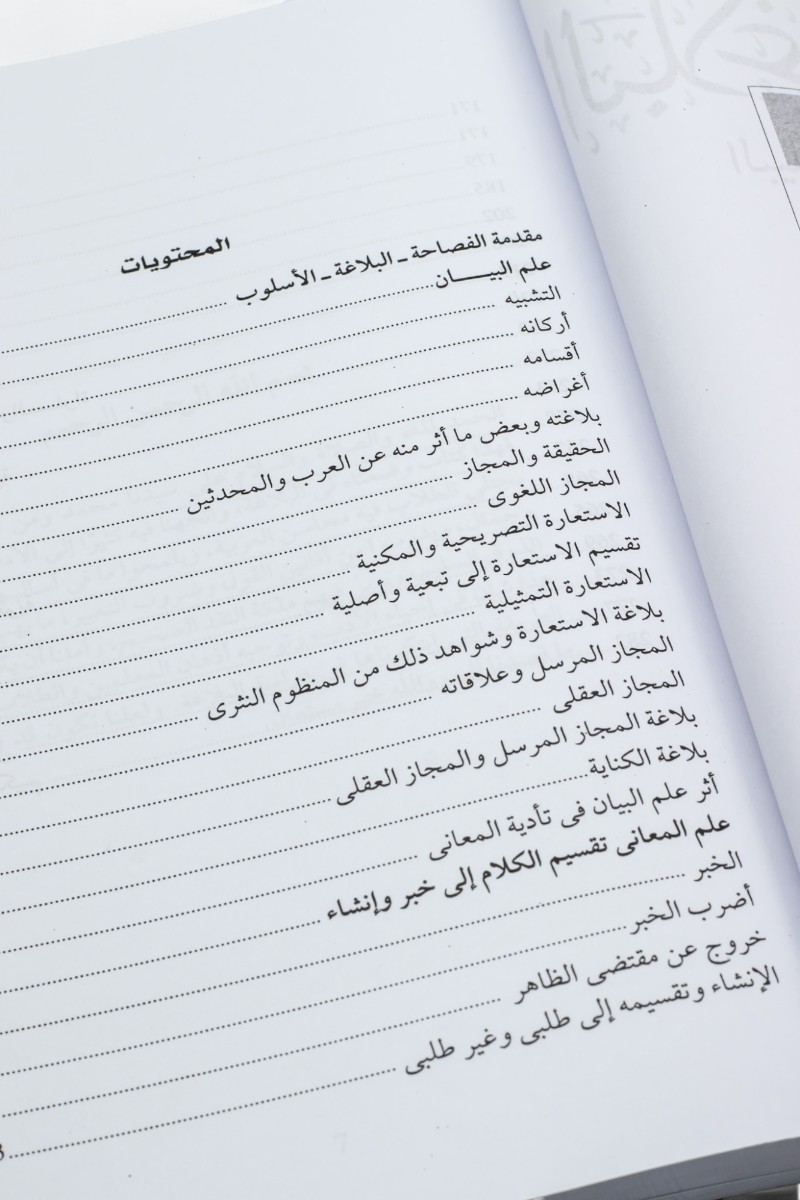 المحتويات
مقدمة الفصاحة ـ البلاغة ـ الأسلوب
علم البيـــــان
التشبيه
أركانه
أقسامه
أغراضه
بلاغته وبعض ما أثر منه عن العرب والمحدثين
الحقيقة والمجاز
المجاز اللغوى
الاستعارة التصريحية والمكنية
تقسيم الاستعارة إلى تبعية وأصلية
الاستعارة التمثيلية
بلاغة الاستعارة وشواهد ذلك من المنظوم النثرى
المجاز المرسل وعلاقاته
المجاز العقلى
بلاغة المجاز المرسل والمجاز العقلى
بلاغة الكناية
أثر علم البيان فى تأدية المعانى
علم المعانى تقسيم الكلام إلى خبر وإنشاء
الخبر
أضرب الخبر
خروج عن مقتضى الظاهر
الإنشاء وتقسيمه إلى طلبى وغير طلبى